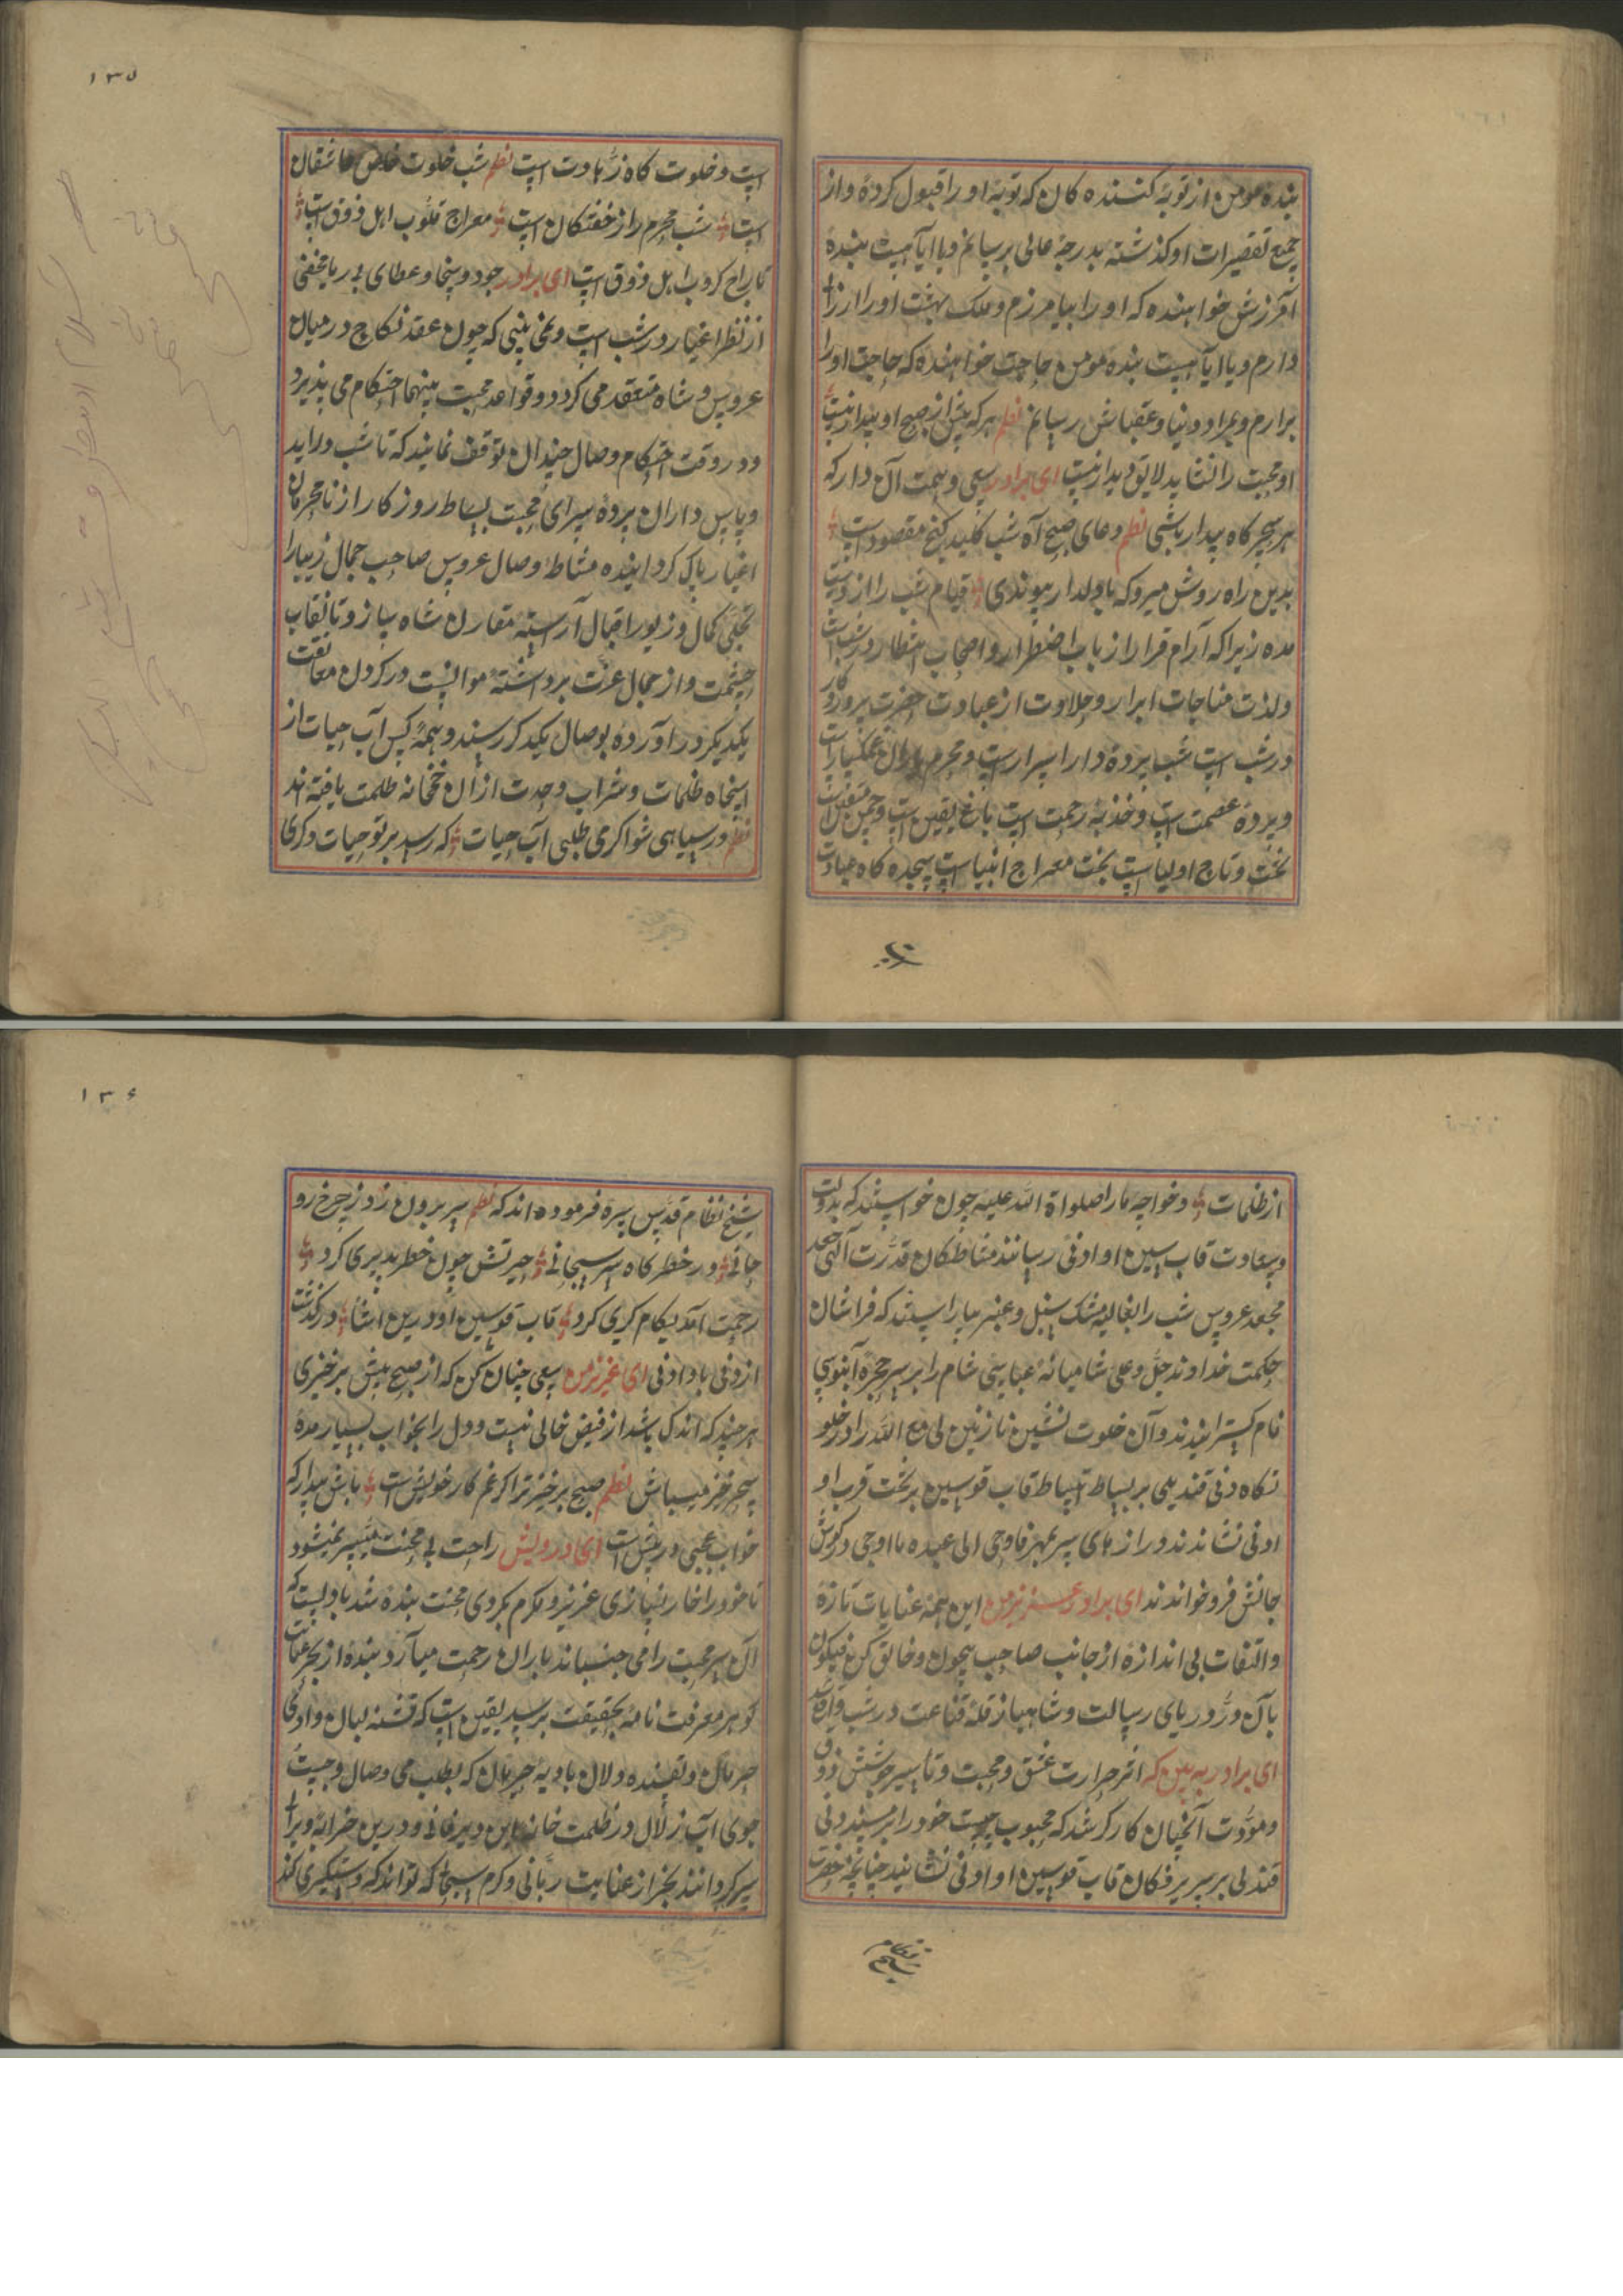 بنده مومن از توبه کننده کان که توبه او را قبول کرده و از
جمیع تقصیرات او کذشته بدرجهٔ عالی برسانم و یا ایا هست بندهٔ
آمرزش خواهنده که او را بیامرزم و ملک بهشت او را ارزا
دارم و یا ایا هست بنده مومن حاجت خواهنده که حاجت او را
برارم و بمراد دنیا و عقباش رسانم نظم هر که پیش از صبح او بیدار نیست
او محبت را نشاید لایق دیدار نیست ای برادر سعی و همت آن دار که
هر سحرگاه بیدار باشی نظم دعای صبح آه شب کلید کنج مقصود است
بدین راه روش میرو که با دلدار پیوندی قیام شب را از دست
مده زیرا که آرام قرار ارباب اضطرار و اصحاب انتظار در شب است
ولذت مناجات ابرار و حلاوت از عبادت حضرت پروردکار
در شب است شب پردهٔ دار اسرار است و محرم یاران غمکسار است
و پردهٔ عصمت است و خذبهٔ رحمت است باغ یقین است و چمن متقین است
تخت و تاج اولیا است بخت معراج انبیا است سجده کاه عباد
است و خلوت کاه زهاد است نظم شب خلوت خاص عاشقان
است شب محرم راز خفتکان است معراج قلوب اهل ذوق است
تاراج کروب اهل ذوق است ای برادر جود و سخا و عطای بی ریا مخفی
از نظر اغیار در شب است و نمی بینی که چون عقد نکاح در میان
عروس و شاه منعقد می کردد و قواعد محبت بینهما استحکام می پذیرد
و در وقت احکام وصال چندان توقف نمایند که تا شب دراید
و پاس داران پردهٔ سرای محبت بساط روز کار از نامحرمان
اغیار پاک کرداینده مشاطهٔ وصال عروس صاحب جمال زیبا را
تجلی کمال و زیور اقبال آراسته مقارن شاه سازد تا نقاب
حشمت و از جمال عزت برداشته موانست در کردن معانقت
یکدیکر در اورده بوصال یکدکر رسند و همه کس آب حیات از
اینجاه ظلمات و شراب وحدت از ان خمخانه ظلمت یافته اند
نظم در سیاهی شو اکر می طلبی آب حیات که رسید بر تو حیات دکری
از ظلمات و خواجه ما را صلواة الله علیه چون خواستند که بدولت
و سعادت قاب سین او ادنی رسانند مشاطکان قدرت آلهی جعد
مجعد عروس شب را بغالیهٔ مشک سنبل و عنبر بیاراستند که فراشان
حکمت خداوند جل و علی شامیانهٔ عباسی شام را بر سر حجرهٔ آبنوسی
نام کسترانیدند و آن خلوت نشین نازنین لی مع الله را در خلو
تکاه دنی فتدلی بر بساط انبساط قاب قوسین بر تخت قرب او
ادنی نشاندند و رازهای سر بمهر فاوحی الی عبده ما اوحی در کوش
جانش فرو خواندند ای برادر عزیز من این همه عنایات تازهٔ
و التفات بی اندازهٔ از جانب صاحب بیچون و خالق کن فیکون
بآن در دریای رسالت و شاهباز قلهٔ قناعت در شب واقع شد
ای برادر به بین که اثر حرارت عشق و محبت و تاسیر جوشش ذوق
و مودت آنچنان کارکر شد که محبوب حبیب خود را بر مسند دنی
فتدلی بر سریر فکان قاب قوسین او ادنی نشانید چنانچه حضرت
شیخ نظام قدس سره فرموده اند که نظم سر برون زد ز چرخ رو
حانی در خطر کاه سر سبحانی حیرتش چون خطر پذیری کرد
رحمت امد لکام کری کرد قاب قوسین او درین اثنا درکذشت
از دنی با و ادنی ای عزیز من سعی چنان کن که از صبح پیش برخیزی
هر چند که اندک باشد از فیض خالی نیست و دل را بخواب بسیار مده
سحر خیز میباش نظم صبح برخیز ترا کر غم کار خویش است باش بیدار که
خواب عجبی در پیش است ای درویش راحت بی محنت میسر نمیشود
تا خود را خار نسازی عزیز و مکرم نکردی محنت بنده شد باد لیست که
آن سر محبت را می جنباند باران رحمت میآرد بنده از بحر عنایت
کوهر معرفت نامه بحقیقت برسد یقین است که تشنه لبان وادی
حرمان و تفسنده دلان بادیه حرمان که بطلب می وصال و جست
جوی آب زلال در ظلمت خانه این دیر فانی و درین خرابه ویرا
سر کردانند بجز از عنایت ربانی و کرم سبحانی که تواند که دستکیری کند